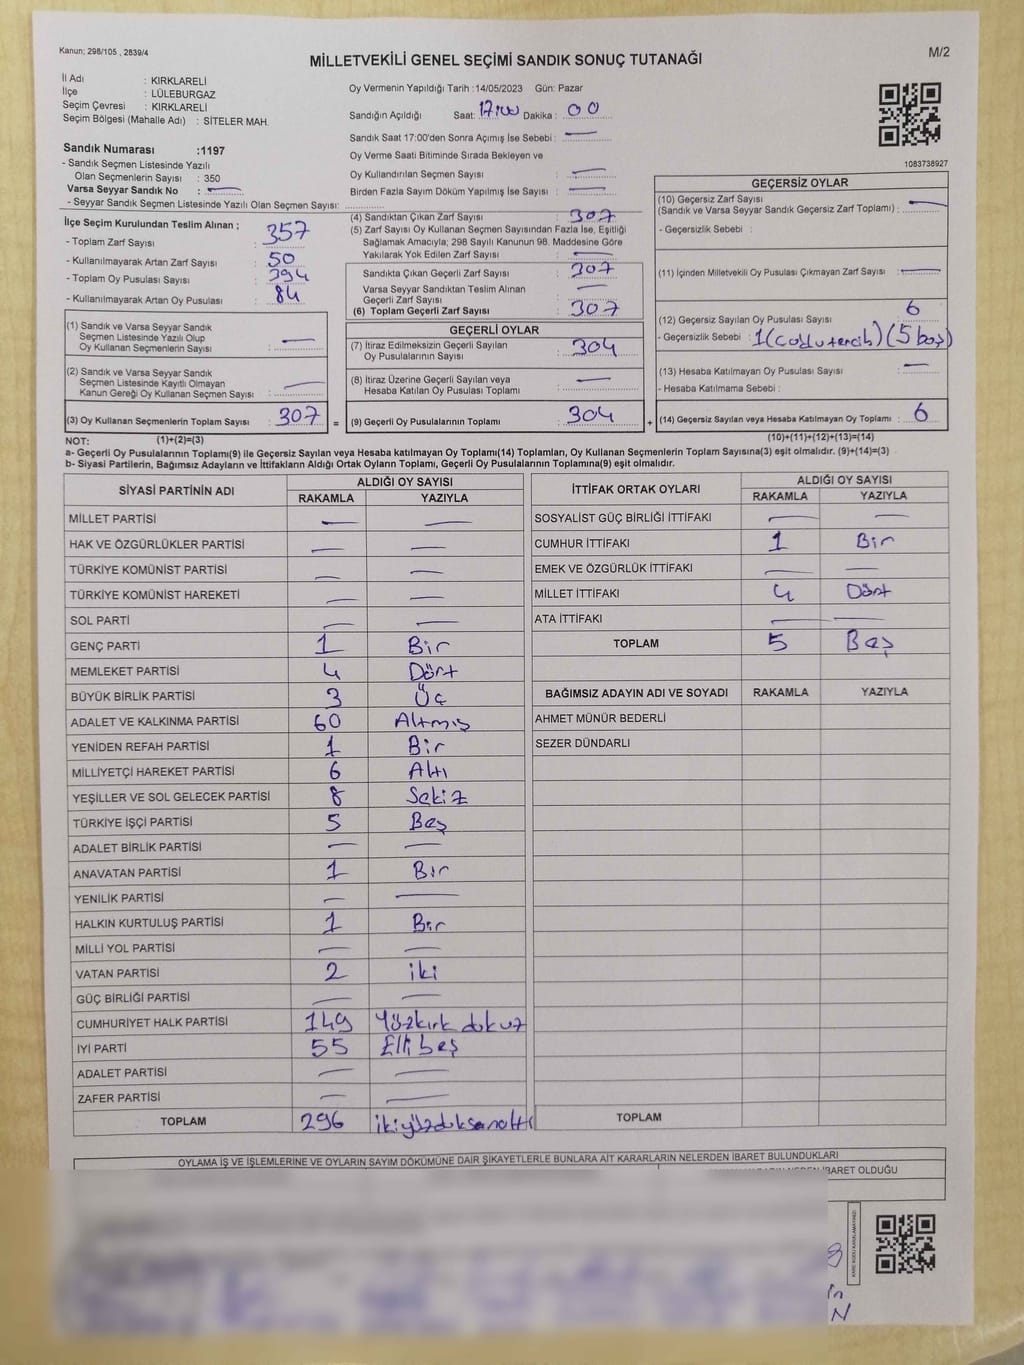 Kanun; 298/105 , 2839/4
M/2
MİLLETVEKİLİ GENEL SEÇİMİ SANDIK SONUÇ TUTANAĞI
İl Adı : KIRKLARELİ
İlçe : LÜLEBURGAZ
Seçim Çevresi : KIRKLARELİ
Seçim Bölgesi (Mahalle Adı) : SİTELER MAH.
Sandık Numarası :1197
- Sandık Seçmen Listesinde Yazılı
Olan Seçmenlerin Sayısı : 350
Varsa Seyyar Sandık No : —
- Seyyar Sandık Seçmen Listesinde Yazılı Olan Seçmen Sayısı:
Oy Vermenin Yapıldığı Tarih :14/05/2023 Gün: Pazar
Sandığın Açıldığı Saat: 17:00 Dakika : 00
Sandık Saat 17:00'den Sonra Açımış İse Sebebi : —
Oy Verme Saati Bitiminde Sırada Bekleyen ve
Oy Kullandırılan Seçmen Sayısı : —
Birden Fazla Sayım Döküm Yapılmış İse Sayısı : —
1083738927
İlçe Seçim Kurulundan Teslim Alınan ;
- Toplam Zarf Sayısı : 357
- Kullanılmayarak Artan Zarf Sayısı : 50
- Toplam Oy Pusulası Sayısı : 394
- Kullanılmayarak Artan Oy Pusulası : 84
(1) Sandık ve Varsa Seyyar Sandık
Seçmen Listesinde Yazılı Olup
Oy Kullanan Seçmenlerin Sayısı : —
(2) Sandık ve Varsa Seyyar Sandık
Seçmen Listesinde Kayıtlı Olmayan
Kanun Gereği Oy Kullanan Seçmen Sayısı : —
(3) Oy Kullanan Seçmenlerin Toplam Sayısı : 307 =
(4) Sandıktan Çıkan Zarf Sayısı : 307
(5) Zarf Sayısı Oy Kullanan Seçmen Sayısından Fazla İse, Eşitliği
Sağlamak Amacıyla; 298 Sayılı Kanunun 98. Maddesine Göre
Yakılarak Yok Edilen Zarf Sayısı : —
Sandıkta Çıkan Geçerli Zarf Sayısı : 307
Varsa Seyyar Sandıktan Teslim Alınan
Geçerli Zarf Sayısı : —
(6) Toplam Geçerli Zarf Sayısı : 307
GEÇERLİ OYLAR
(7) İtiraz Edilmeksizin Geçerli Sayılan
Oy Pusulalarının Sayısı : 304
(8) İtiraz Üzerine Geçerli Sayılan veya
Hesaba Katılan Oy Pusulası Toplamı : —
(9) Geçerli Oy Pusulalarının Toplamı : 304 +
GEÇERSİZ OYLAR
(10) Geçersiz Zarf Sayısı
(Sandık ve Varsa Seyyar Sandık Geçersiz Zarf Toplamı) : —
- Geçersizlik Sebebi :
(11) İçinden Milletvekili Oy Pusulası Çıkmayan Zarf Sayısı : —
(12) Geçersiz Sayılan Oy Pusulası Sayısı : 6
- Geçersizlik Sebebi : 1(çoklu tercih)(5 boş)
(13) Hesaba Katılmayan Oy Pusulası Sayısı : —
- Hesaba Katılmama Sebebi :
(14) Geçersiz Sayılan veya Hesaba Katılmayan Oy Toplamı : 6
NOT: (1)+(2)=(3)
(10)+(11)+(12)+(13)=(14)
a- Geçerli Oy Pusulalarının Toplamı(9) ile Geçersiz Sayılan veya Hesaba katılmayan Oy Toplamı(14) Toplamları, Oy Kullanan Seçmenlerin Toplam Sayısına(3) eşit olmalıdır. (9)+(14)=(3)
b- Siyasi Partilerin, Bağımsız Adayların ve İttifakların Aldığı Ortak Oyların Toplamı, Geçerli Oy Pusulalarının Toplamına(9) eşit olmalıdır.
SİYASİ PARTİNİN ADI ALDIĞI OY SAYISI
RAKAMLA YAZIYLA
MİLLET PARTİSİ — —
HAK VE ÖZGÜRLÜKLER PARTİSİ — —
TÜRKİYE KOMÜNİST PARTİSİ — —
TÜRKİYE KOMÜNİST HAREKETİ — —
SOL PARTİ — —
GENÇ PARTİ 1 Bir
MEMLEKET PARTİSİ 4 Dört
BÜYÜK BİRLİK PARTİSİ 3 Üç
ADALET VE KALKINMA PARTİSİ 60 Altmış
YENİDEN REFAH PARTİSİ 1 Bir
MİLLİYETÇİ HAREKET PARTİSİ 6 Altı
YEŞİLLER VE SOL GELECEK PARTİSİ 8 Sekiz
TÜRKİYE İŞÇİ PARTİSİ 5 Beş
ADALET BİRLİK PARTİSİ — —
ANAVATAN PARTİSİ 1 Bir
YENİLİK PARTİSİ — —
HALKIN KURTULUŞ PARTİSİ 1 Bir
MİLLİ YOL PARTİSİ — —
VATAN PARTİSİ 2 iki
GÜÇ BİRLİĞİ PARTİSİ — —
CUMHURİYET HALK PARTİSİ 149 Yüzkırk dokuz
İYİ PARTİ 55 Elli beş
ADALET PARTİSİ — —
ZAFER PARTİSİ — —
TOPLAM 296 ikiyüzdoksanaltı
İTTİFAK ORTAK OYLARI ALDIĞI OY SAYISI
RAKAMLA YAZIYLA
SOSYALİST GÜÇ BİRLİĞİ İTTİFAKI — —
CUMHUR İTTİFAKI 1 Bir
EMEK VE ÖZGÜRLÜK İTTİFAKI — —
MİLLET İTTİFAKI 4 Dört
ATA İTTİFAKI — —
TOPLAM 5 Beş
BAĞIMSIZ ADAYIN ADI VE SOYADI RAKAMLA YAZIYLA
AHMET MÜNÜR BEDERLİ
SEZER DÜNDARLI
TOPLAM
OYLAMA İŞ VE İŞLEMLERİNE VE OYLARIN SAYIM DÖKÜMÜNE DAİR ŞİKAYETLERLE BUNLARA AİT KARARLARIN NELERDEN İBARET BULUNDUKLARI
İBARET OLDUĞU